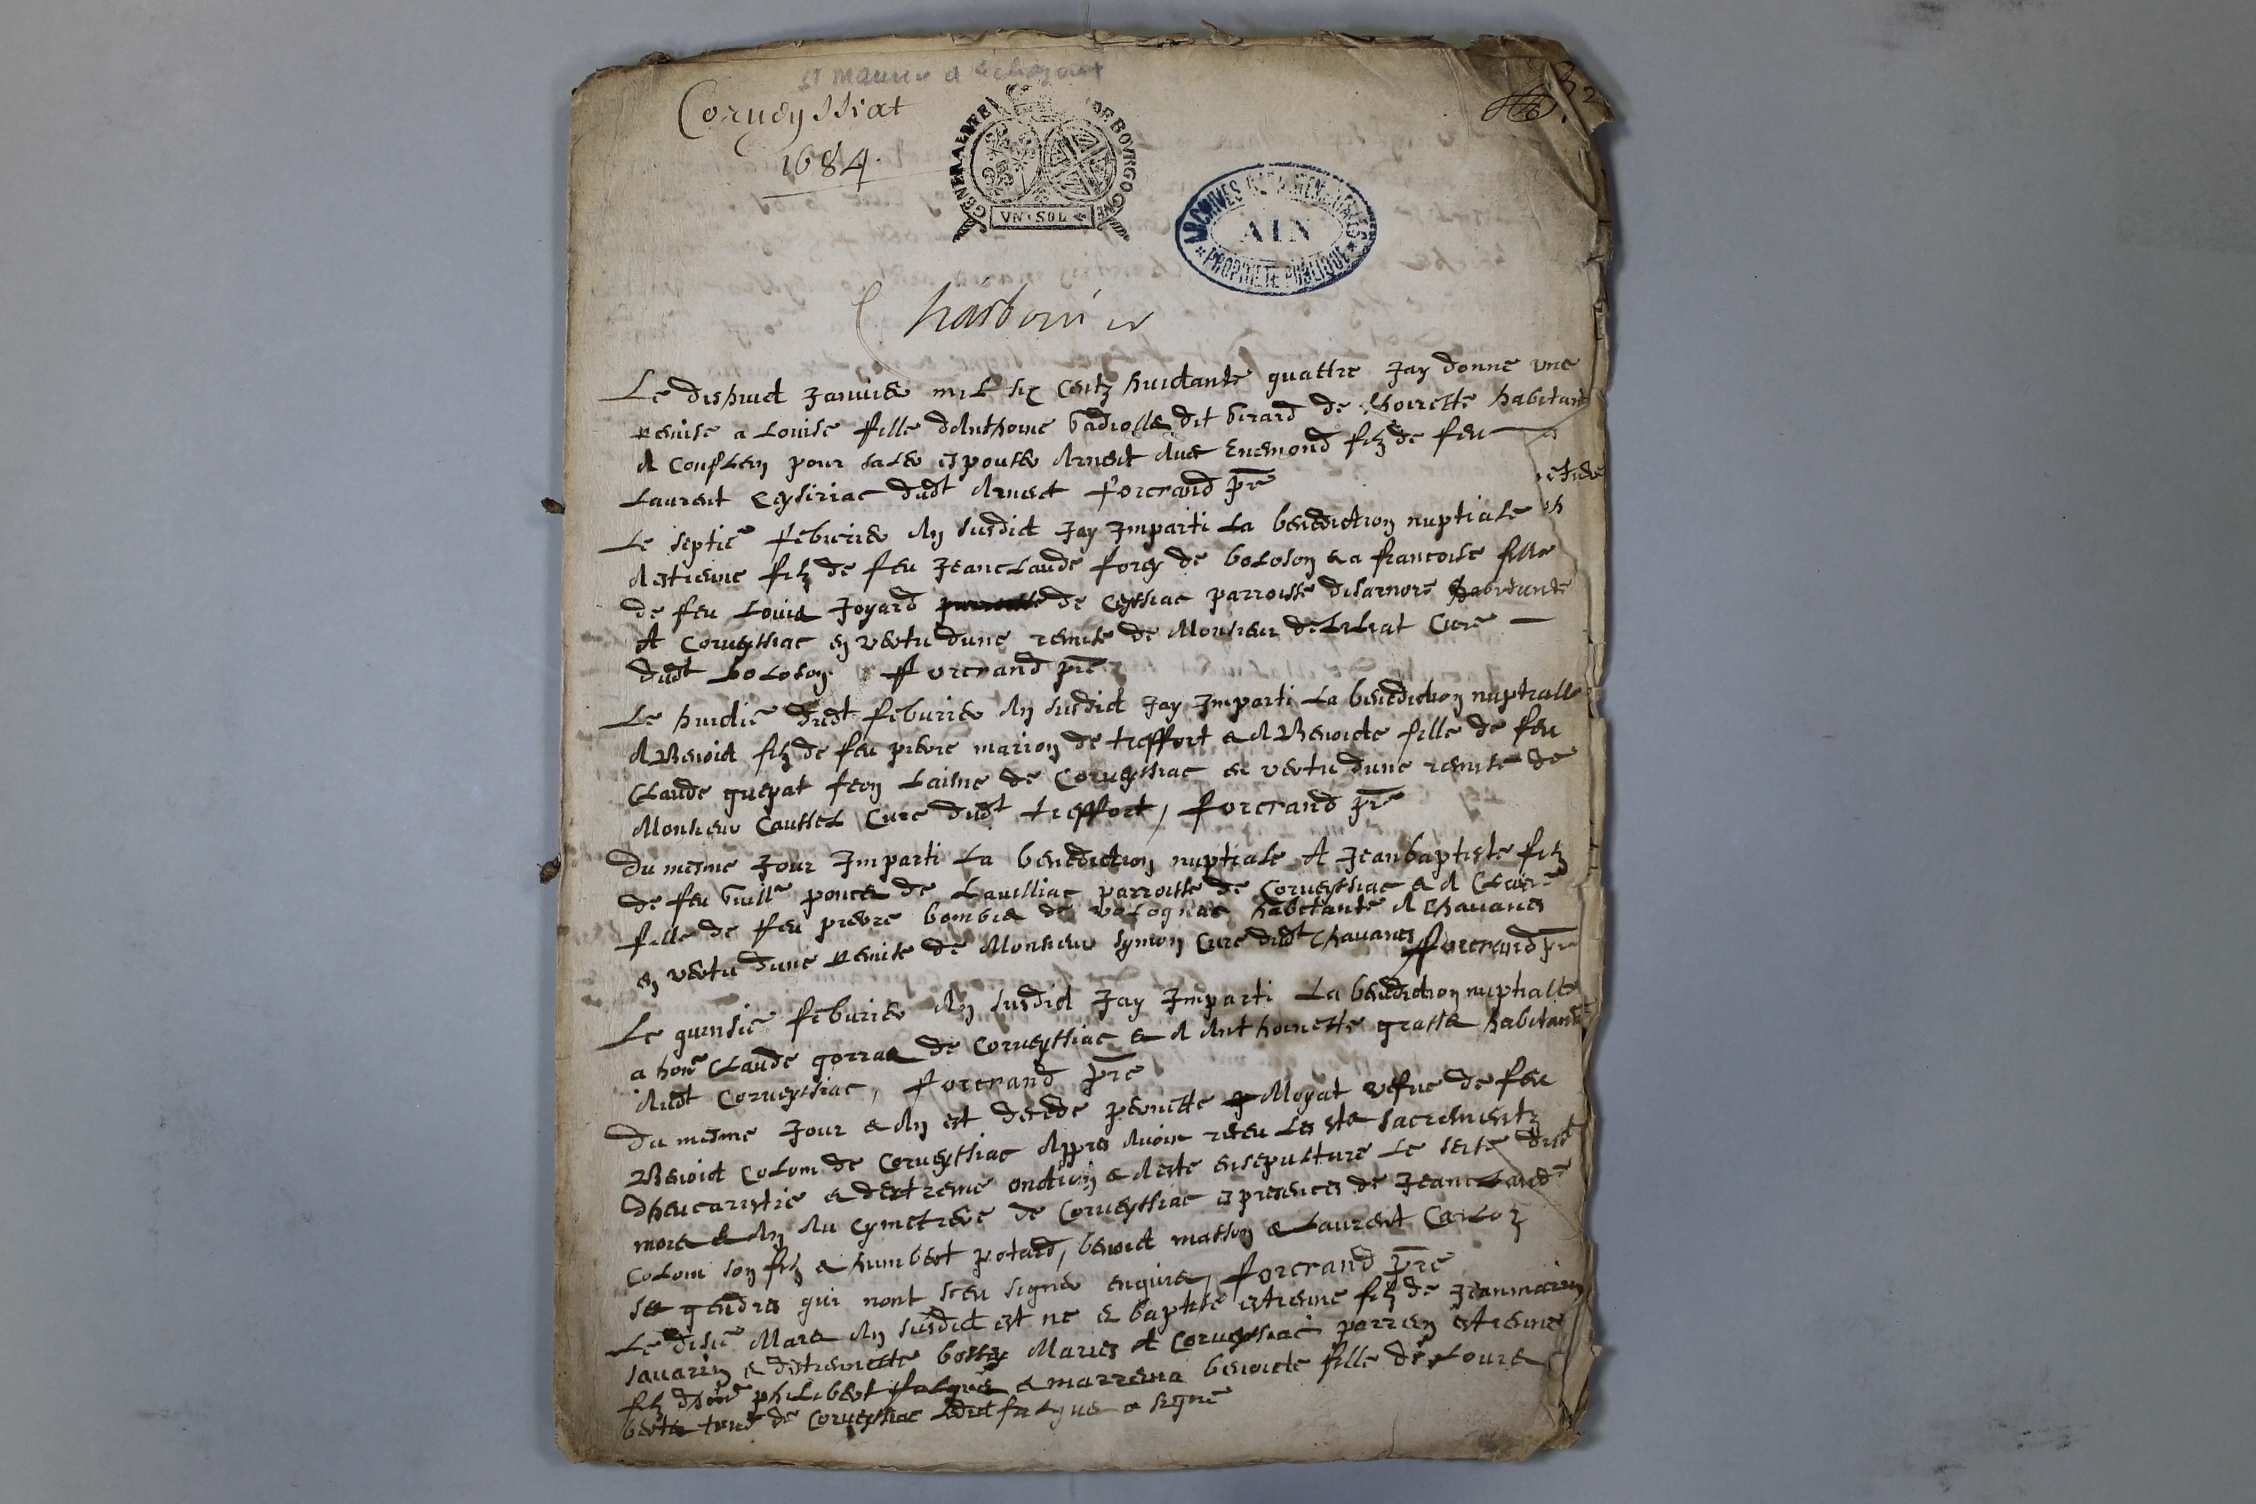 St maurice d echazeaux
Corueyssiat
1684.
GENERALITE DE BOVRGOGNE
VN SOL
ARCHIVES DEPARTEMENTALES
AIN
PROPRIETE PUBLIQUE
Charbonnier
Le dishuict Januier mil six Centz huictante quattre Jay donne vne
remise a Louise fille dAnthoine dit Girard de Thoirette habitant
A Conflens pour saler espouser Arnect Auec Enemond filz de feu
Laurent Ceysiriac dudt Arnect forcrand pre
Le septie feburier An susdict Jay Imparti La benediction nuptiale
A estienne filz de feu JeanClaude forey de boloson & a francoise fille
de feu Louis Joyard de Ceyssiac parroisse disarnore habitante
A Corueyssiac en vertu dune remise de Monsieur deLiLiat Cure
dudt boLoson forcrand pre
Le huictie dudt feburier An susdict Jay Imparti La benediction nuptialle
A Benoict filz de feu pierre marion de treffort & A Benoicte fille de feu
CLaude guepat feon Laisne de Corueyssiac en vertu dune remise de
Monsieur Caussel Cure dudt treffort, forcrand pre
Du mesme Jour Imparti La benediction nuptiale A Jeanbaptiste filz
de feu Guille ponce de Lauilliac parroisse de Corueyssiac & A CLaire
fille de feu pierre de volognac habitante A Chauanes
en vertu dune remise de Monsieur symon Cure dudt Chauanes forcrand pre
Le quinsie feburier An susdict Jay Imparti La benediction nuptialle
a hone CLaude gorras de Corueyssiac & A Anthoinette habitante
Audt Corueyssiac, forcrand pre
Du mesme Jour & An est decede pernette Moyat vefue de feu
Benoict Colom de Corueyssiac Appres Auoir receu Les sts sacrementz
dheucaristie & dextreme onction & A este ensepulture Le seise dudt
mois & An Au Cymetiere de Corueyssiac es presences de JeanClaude
Colom son filz & humbert potard, benoict masson & Laurent CarLoz
ses gendres qui nont sceu signer enquis, forcrand pre
Le disie Mars An susdict est ne & baptise estienne filz de Jeanmarin
sauarin & destiennette bossy Maries de Corueyssiac parrein estienne
filz dhone phiLibert falque & marreina benoicte fille de Louis
de Corueyssiac Ledict falque a signe